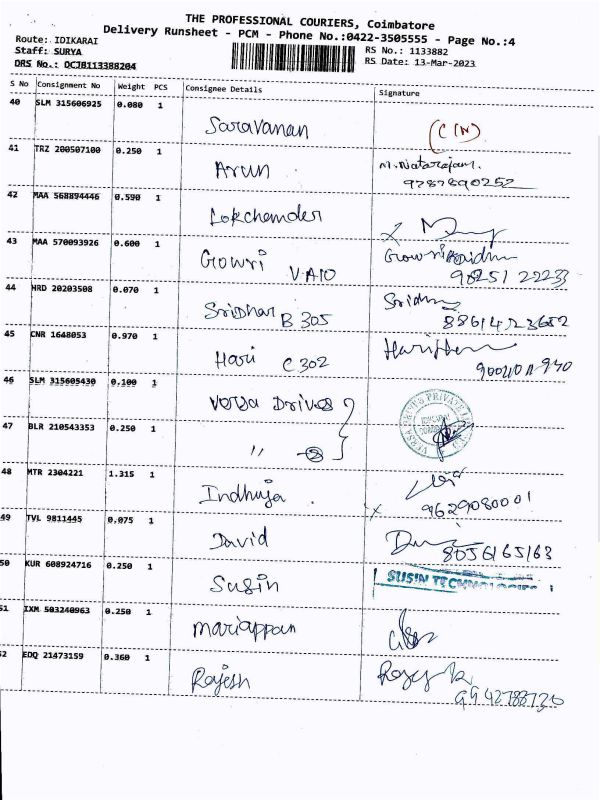 THE PROFESSIONAL COURIERS, Coimbatore
Delivery Runsheet - PCM - Phone No.:0422-3505555 - Page No.:4
Route: IDIKARAI
RS No.: 1133882
Staff: SURYA
RS Date: 13-Mar-2023
DRS No.: DCJB113388204
S No Consignment No Weight PCS Consignee Details Signature
40 SLM 315606925 0.080 1
Saravanan (CIN)
41 TRZ 200507100 0.250 1
Arun M. Natarajan.
9787890252
42 MAA 568894446 0.590 1
Lokchander
43 MAA 570093926 0.600 1
Gowri VA10 Gowri
98251 22233
44 HRD 20203508 0.070 1
Sridhar B 305 Sridhar
45 CNR 1648053 0.970 1
Hari C 302
46 SLM 315605430 0.100 1
Versa Drives
47 BLR 210543353 0.250 1
〃
48 MTR 2304221 1.315 1
Indhuja .
x 9629080001
49 TVL 9811445 0.075 1
David
8056165168
50 KUR 608924716 0.250 1
Susin SUSIN TECHNOLOGIES
51 IXM 503240963 0.250 1
Mariappan
52 EDQ 21473159 0.360 1
Rajesh